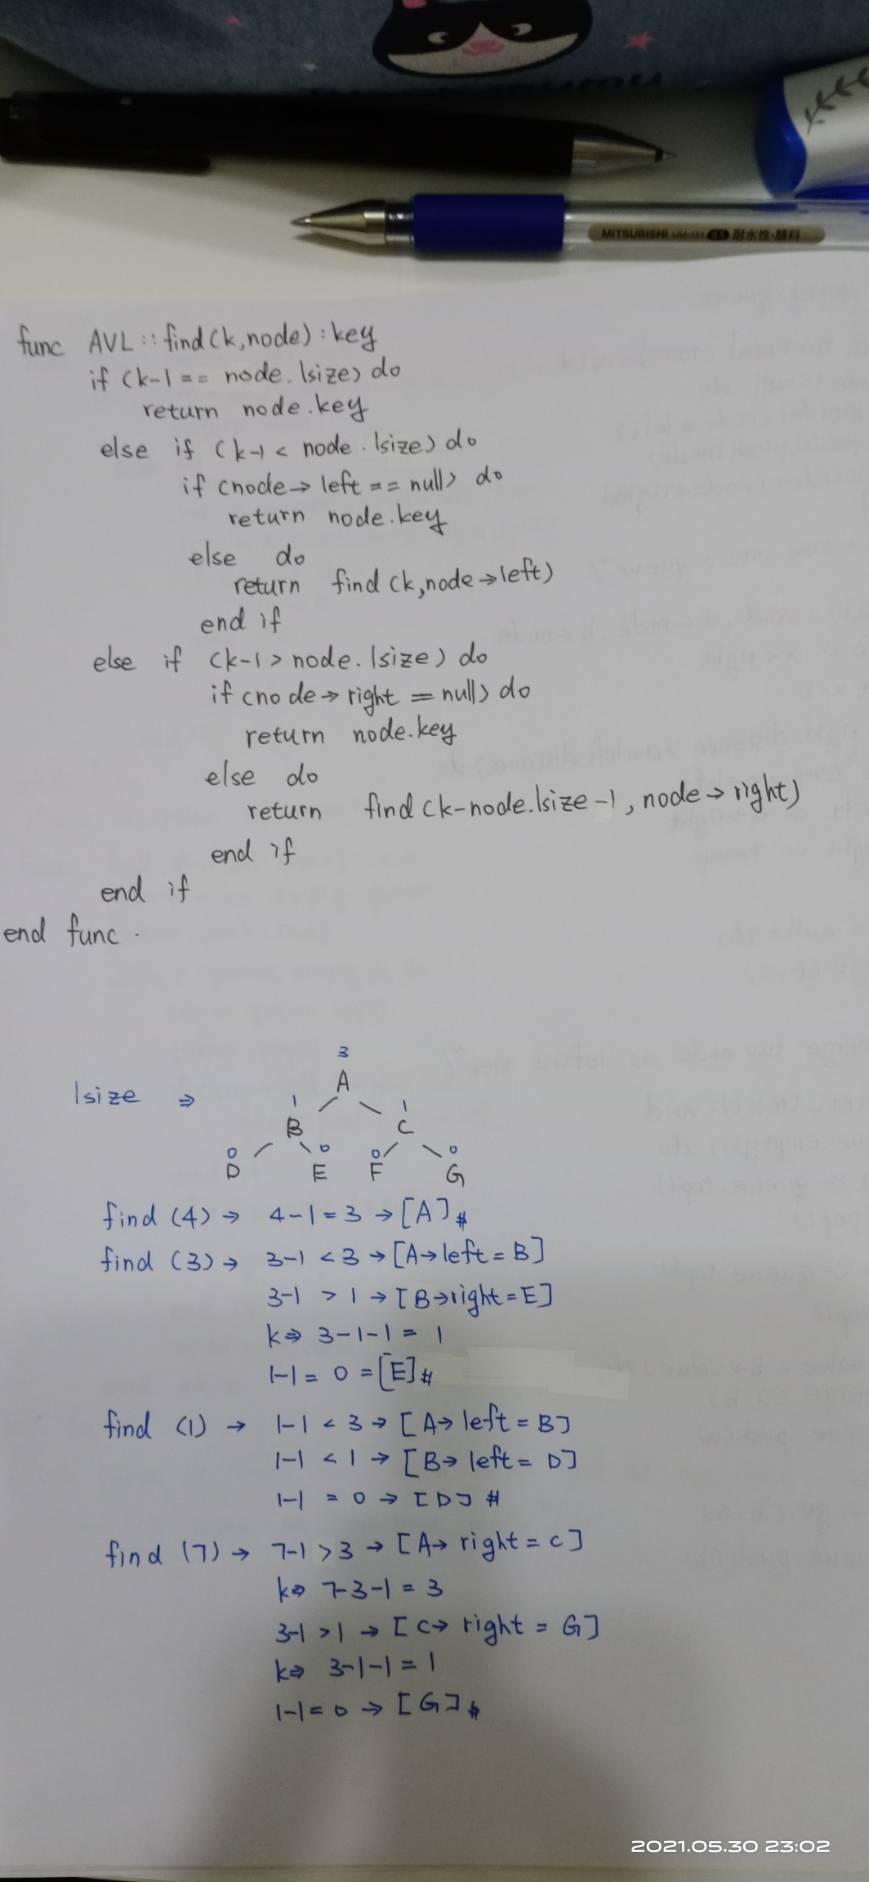 MITSUBISHI 耐水性·顔料
func AVL::find(k,node):key
if (k-1 == node.lsize) do
return node.key
else if (k-1 < node.lsize) do
if (node→left == null) do
return node.key
else do
return find(k,node→left)
end if
else if (k-1 > node.lsize) do
if (node→right == null) do
return node.key
else do
return find(k-node.lsize-1, node→right)
end if
end if
end func.
3
lsize ⇒ A
1 1
B C
0 0 0 0
D E F G
find (4) → 4-1=3 → [A]#
find (3) → 3-1 < 3 → [A→left = B]
3-1 > 1 → [B→right=E]
k⇒ 3-1-1 = 1
1-1 = 0 = [E]#
find (1) → 1-1 < 3 → [A→ left = B]
1-1 < 1 → [B→ left = D]
1-1 = 0 → [D] #
find (7) → 7-1 > 3 → [A→ right = C]
k⇒ 7-3-1 = 3
3-1 > 1 → [C→ right = G]
k⇒ 3-1-1 = 1
1-1 = 0 → [G]#
2021.05.30 23:02